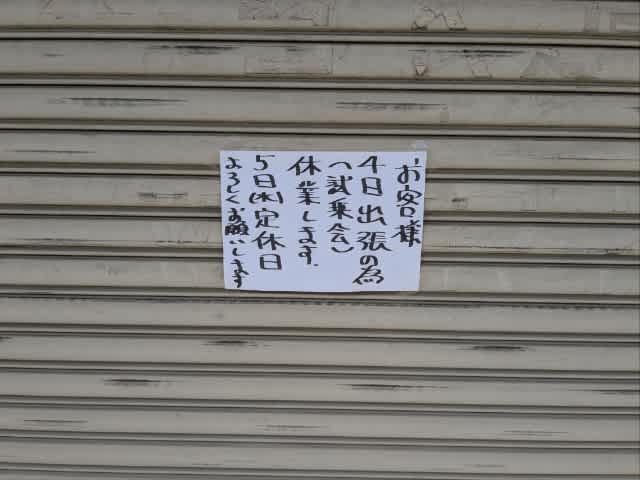 お客様
4日出張の為
(試乗会)
休業します.
5日(水)定休日
よろしくお願いします